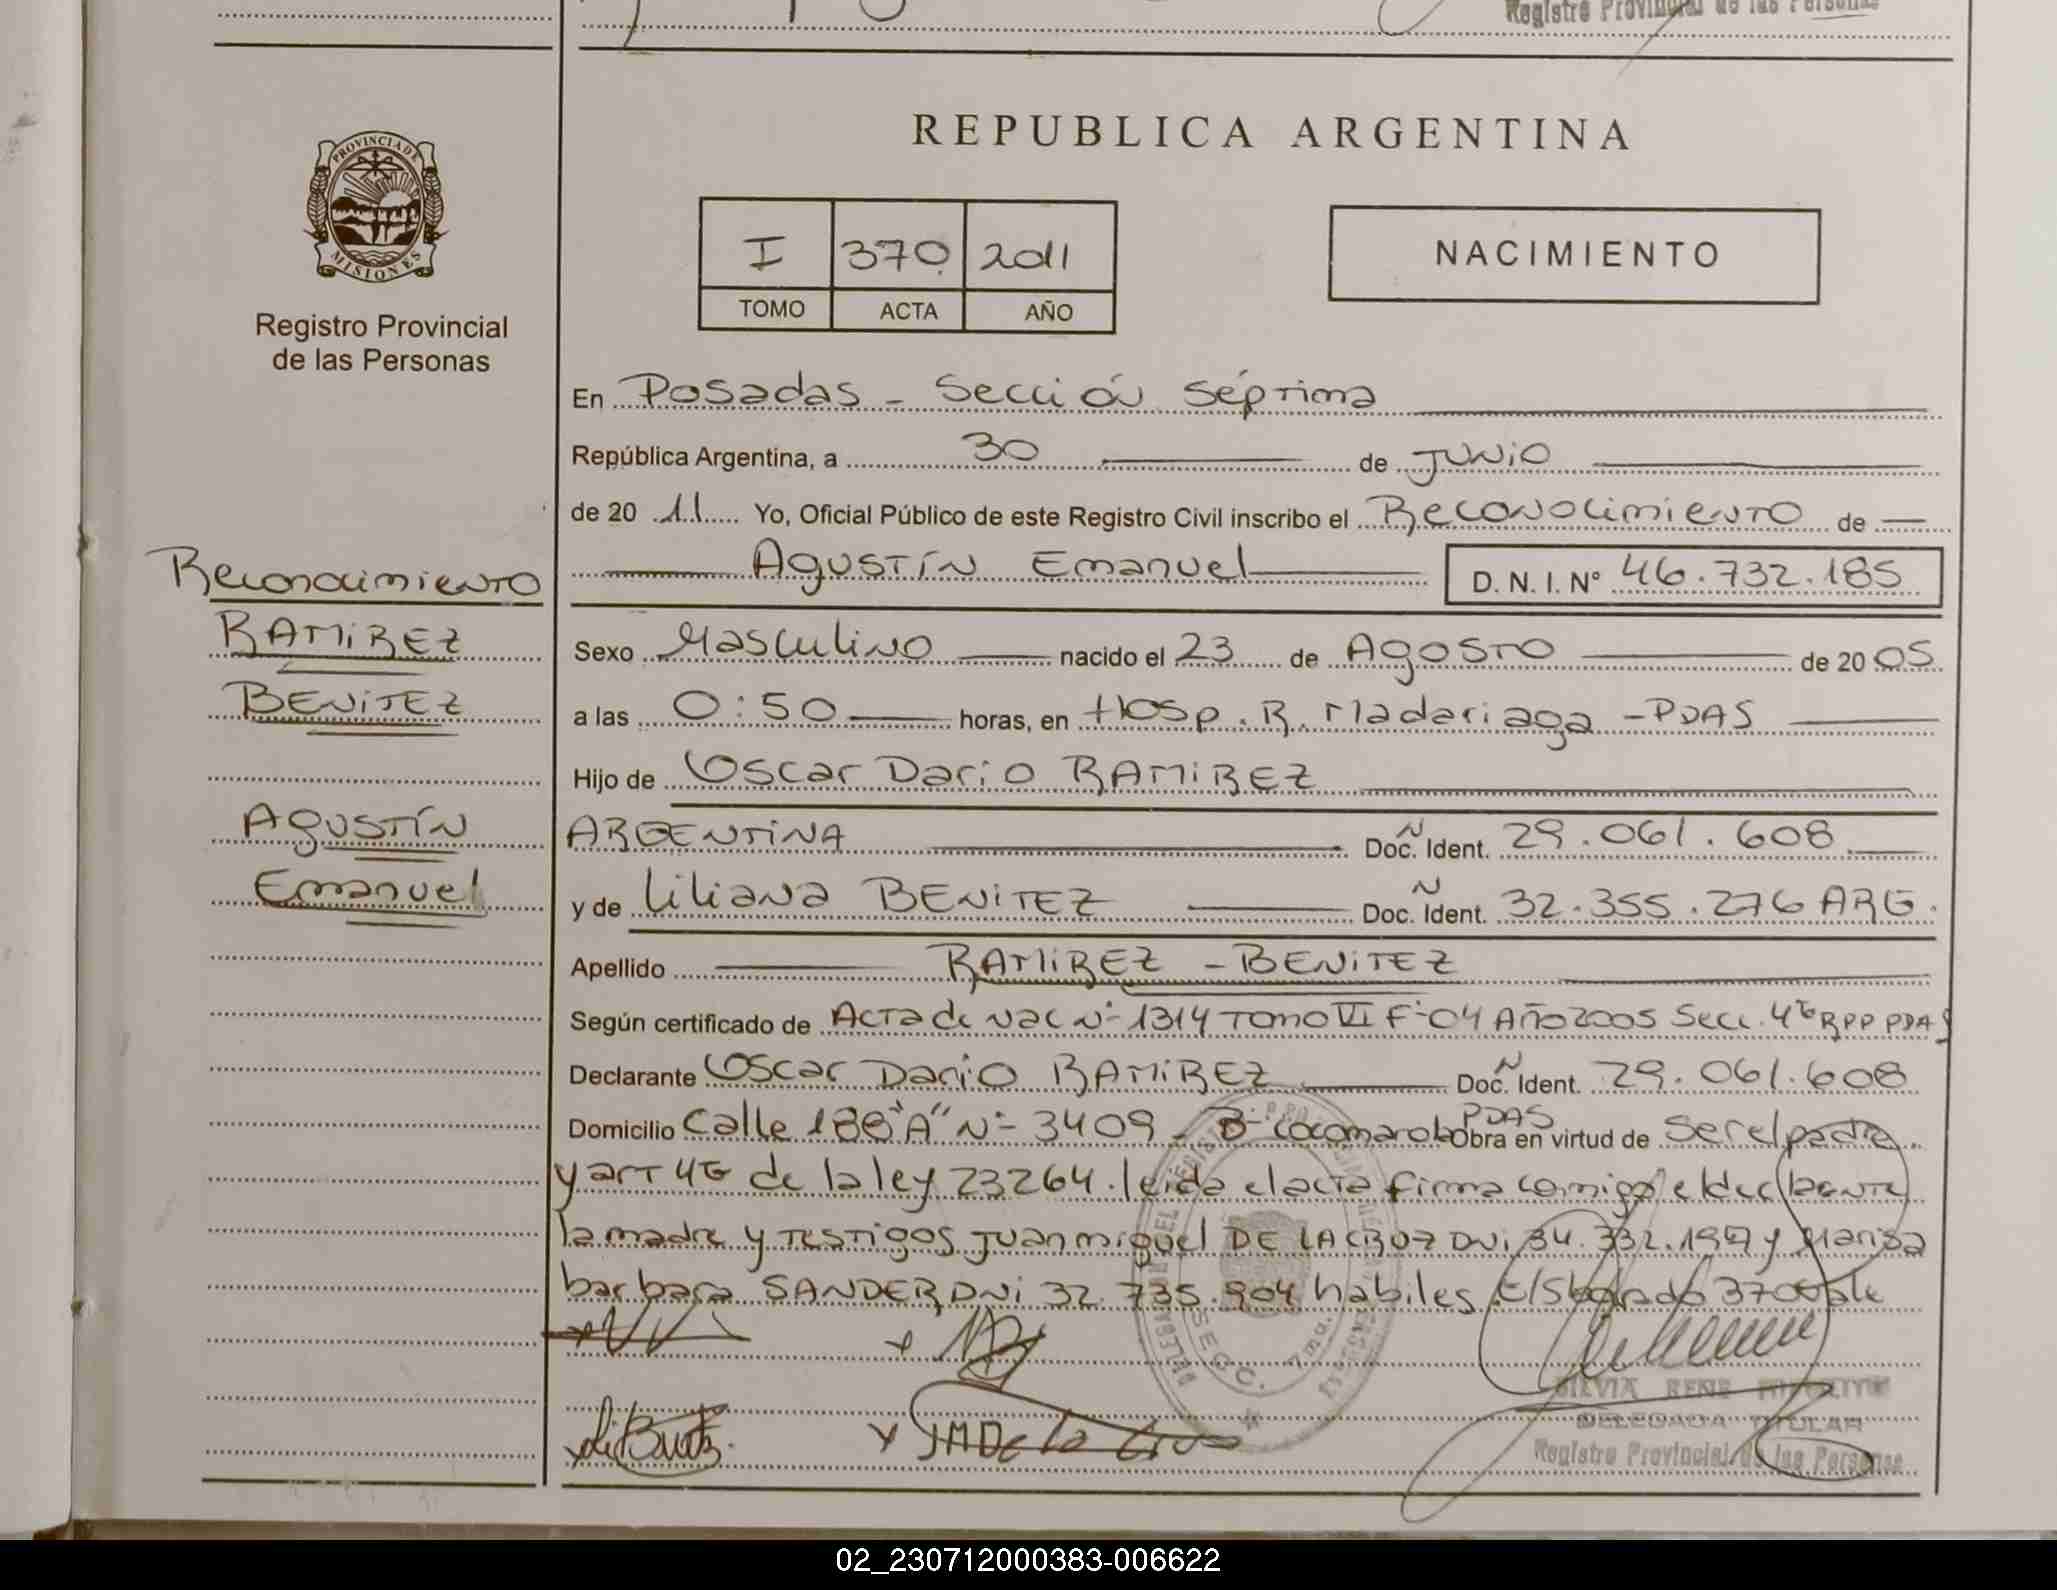 Registro Provincial de las Personas
REPUBLICA ARGENTINA
PROVINCIA DE
MISIONES
Registro Provincial
de las Personas
I 370 2011
TOMO ACTA AÑO
NACIMIENTO
En Posadas - Sección Séptima
República Argentina, a 30 de JUNIO
de 20 11 Yo, Oficial Público de este Registro Civil inscribo el Reconocimiento de
Agustín Emanuel D. N. I. Nº 46.732.185
Reconocimiento
RAMIREZ
BENITEZ
Agustín
Emanuel
Sexo Masculino nacido el 23 de Agosto de 20 05
a las 0:50 horas, en Hosp. R. Madariaga - PDAS
Hijo de Oscar Dario RAMIREZ
ARGENTINA Doc. Ident. 29.061.608
y de Liliana BENITEZ Doc. Ident. 32.355.276 ARG.
Apellido RAMIREZ - BENITEZ
Según certificado de Acta de Nac Nº 1314 Tomo VI Fº 04 Año 2005 Secc. 4ta RPP PDAS
Declarante Oscar Dario RAMIREZ Doc. Ident. 29.061.608
Domicilio Calle 188 "A" Nº 3409 - Bº Cocomarola PDAS Obra en virtud de ser el padre
y art 46 de la ley 23264. leida el acta firma conmigo el declarante
la madre y testigos Juan miguel DE LA CRUZ DNi 34.332.197 y Marisa
barbara SANDER DNi 32.735.904 habiles. E/S 370 vale
JM De la Cruz
SECC. 7ma.
SILVIA RENE
DELEGADA TITULAR
Registro Provincial de las Personas
02_230712000383-006622